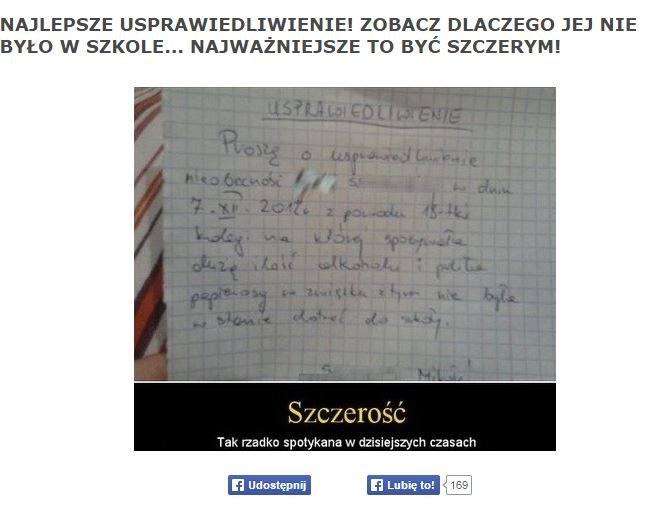 NAJLEPSZE USPRAWIEDLIWIENIE! ZOBACZ DLACZEGO JEJ NIE
BYŁO W SZKOLE... NAJWAŻNIEJSZE TO BYĆ SZCZERYM!
USPRAWIEDLIWIENIE
Proszę o usprawiedliwienie
nieobecność w dniu
7.XII.2012r z powodu 18-tki
kolegi na której spożywała
dużą ilość alkoholu i paliła
papierosy w związku z tym nie była
w stanie dotrzeć do szkoły.
Szczerość
Tak rzadko spotykana w dzisiejszych czasach
Udostępnij
Lubię to! 169